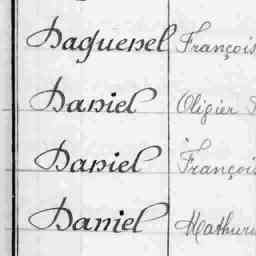 Daguenel François
Daniel Oligier
Daniel François
Daniel Mathurin